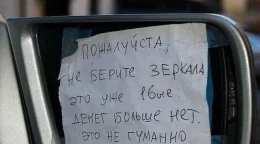 ПОЖАЛУЙСТА,
НЕ БЕРИТЕ ЗЕРКАЛА
ЭТО УЖЕ 18ЫЕ
ДЕНЕГ БОЛЬШЕ НЕТ.
ЭТО НЕ ГУМАННО